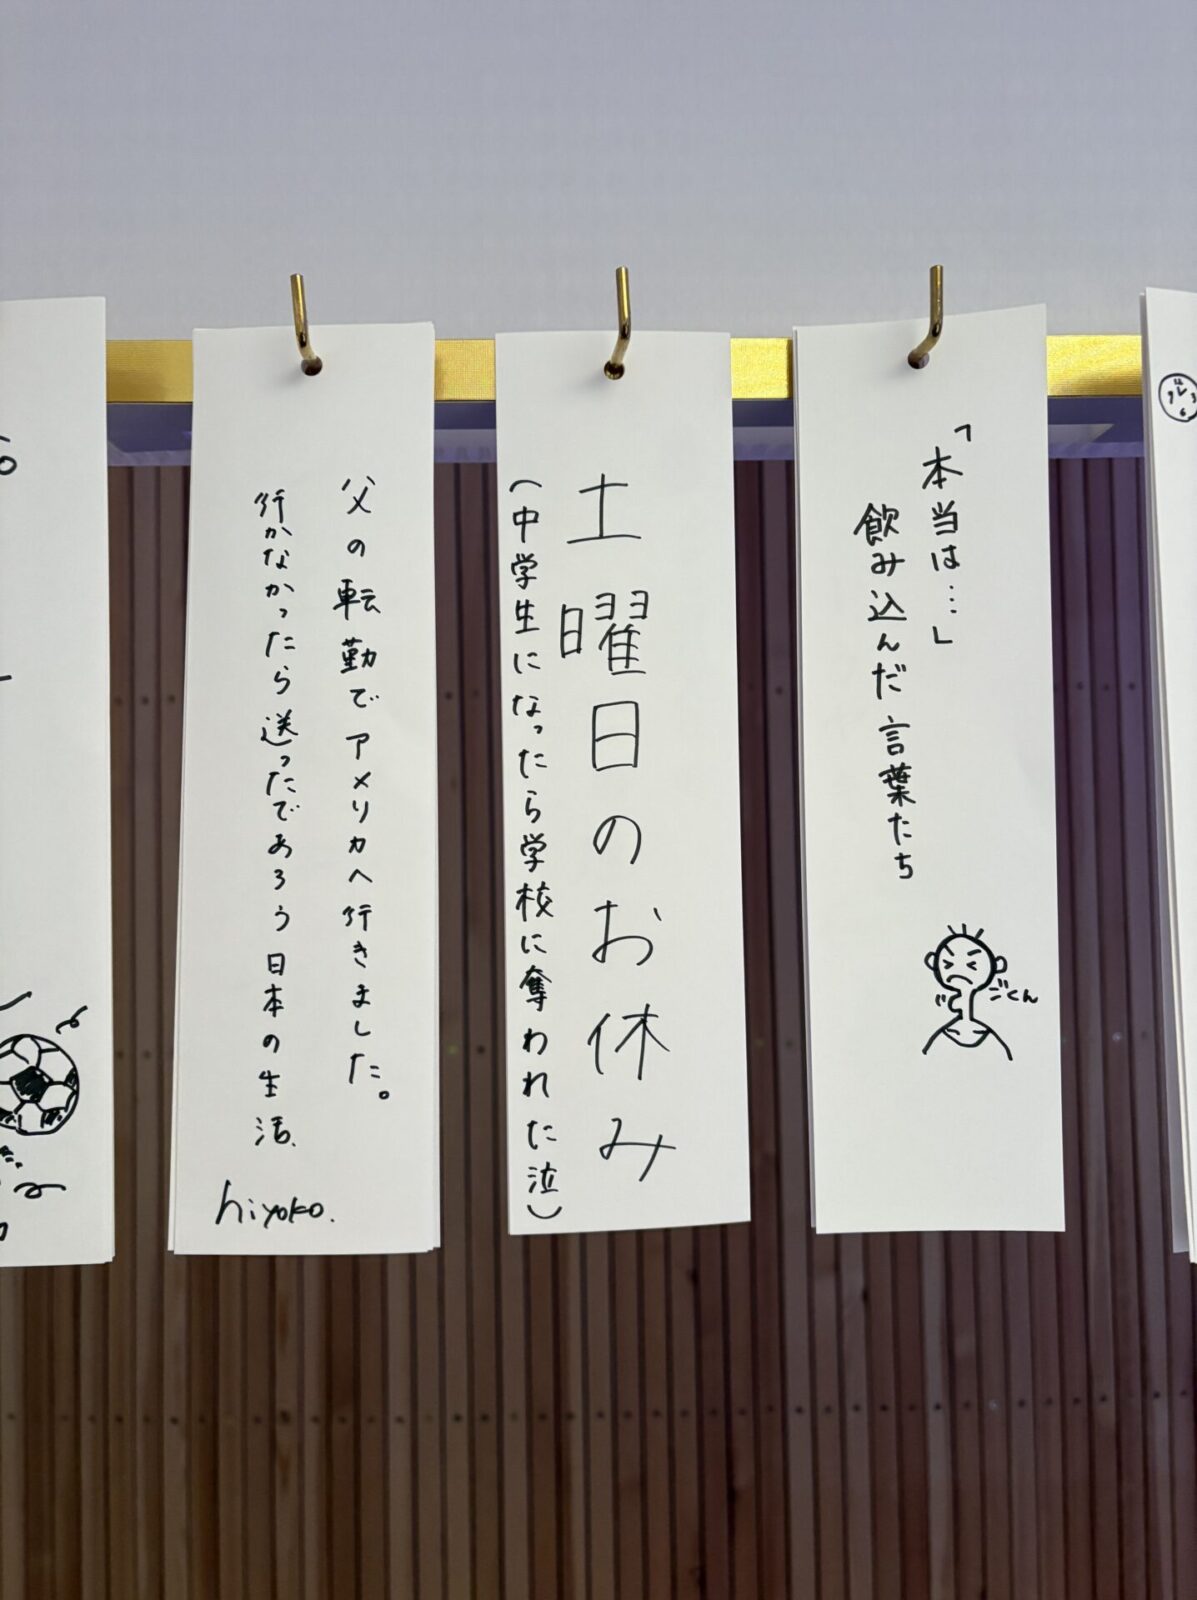 父の転勤でアメリカへ行きました。
行かなかったら送ったであろう日本の生活.
hiyoko.
土曜日のお休み
(中学生になったら学校に奪われた泣)
「本当は…」
飲み込んだ言葉たち
ごくん
12
9 3
6